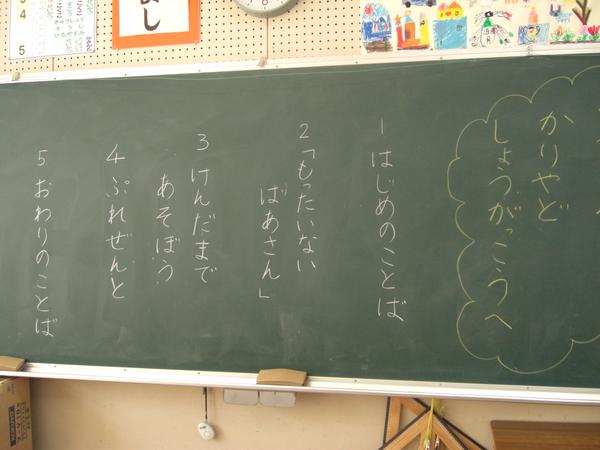 かりやど
しょうがっこうへ
1 はじめのことば
2「もったいない
ばあさん」
3 けんだまで
あそぼう
4 ぷれぜんと
5 おわりのことば
よし
4
5